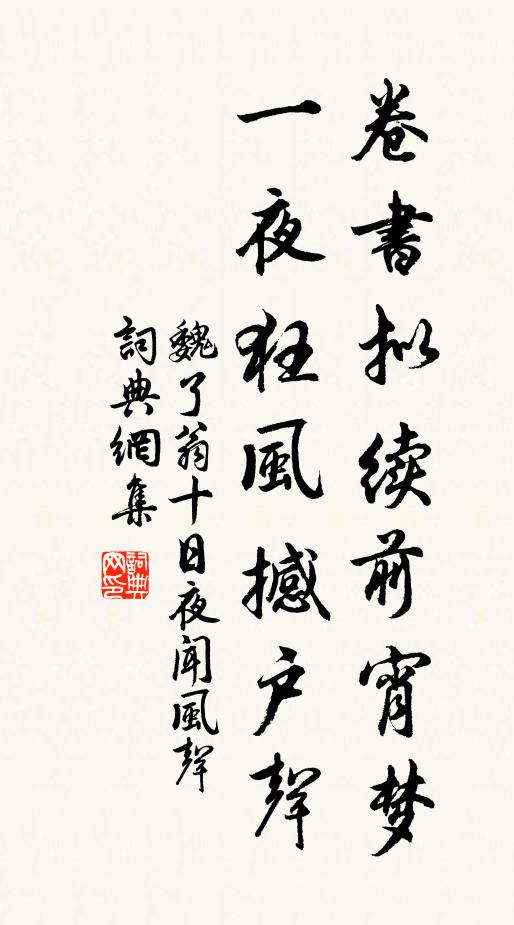 卷書拟续前宵梦
一夜狂風撼户聲
魏了翁十日夜闻風聲
詞典網集
詞典
网印